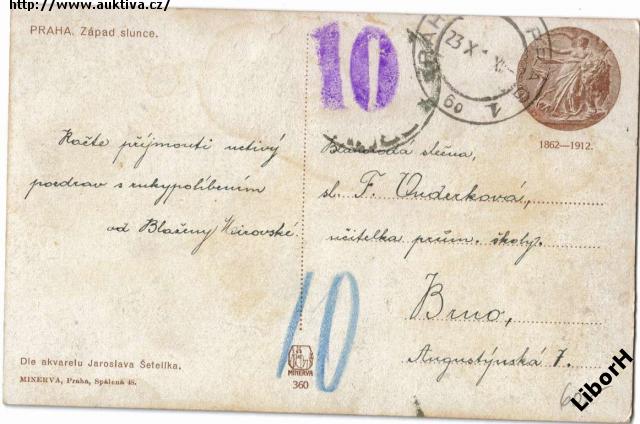 http://www.auktiva.cz/
PRAHA. Západ slunce.
10
23 X
69
1
1862—1912.
Račte přijmouti uctivý
pozdrav s rukypolíbením
od Blaženy
Blahorodá slečna,
sl. F. Onderková,
učitelka prům. školy.
Brno,
Augustýnská 7.
10
Dle akvarelu Jaroslava Šetelíka.
MINERVA, Praha, Spálená 48.
MINERVA
360
LiborH